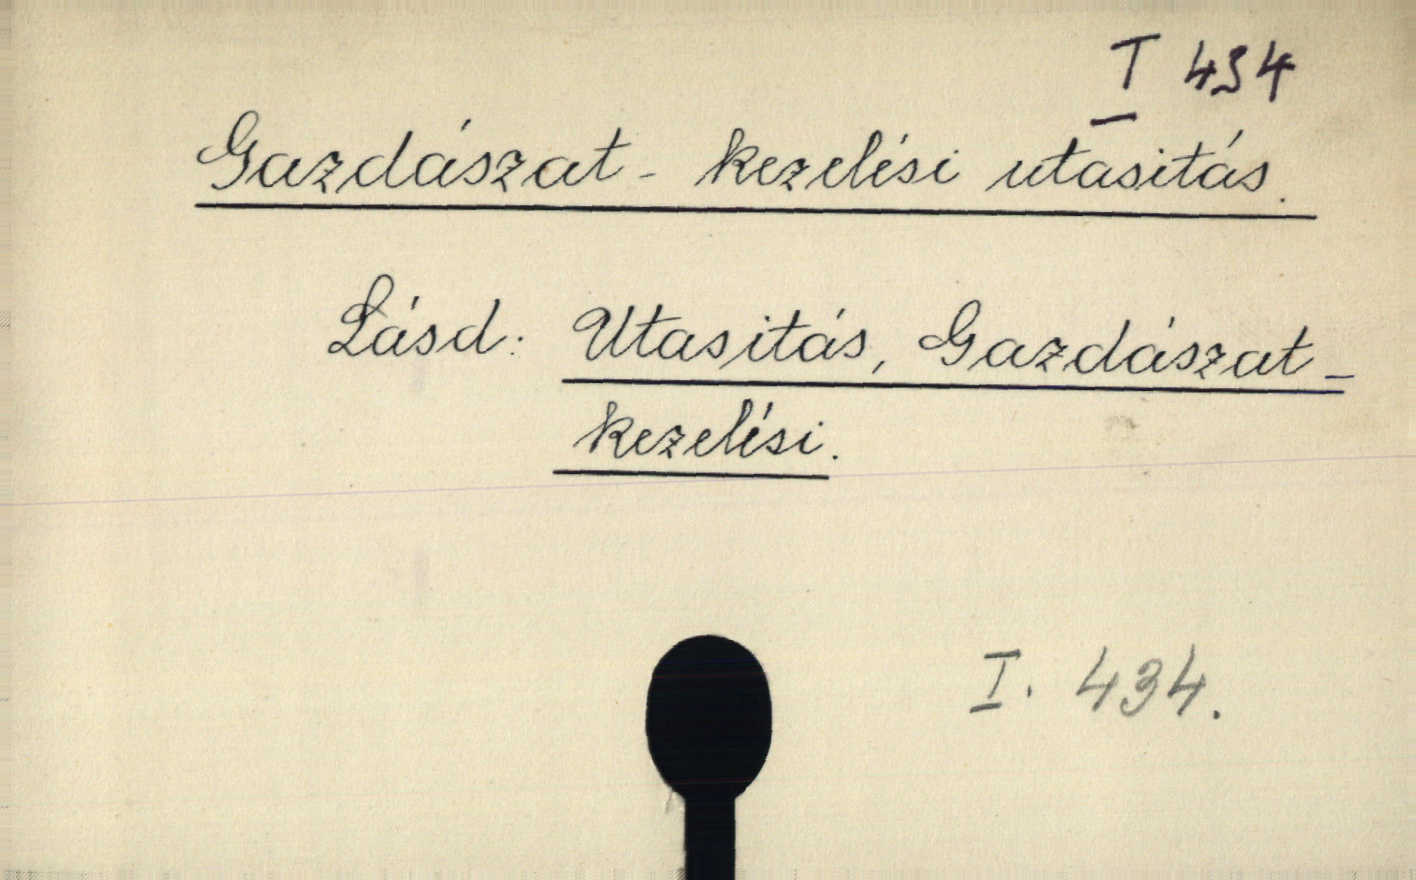 I 434
Gazdászat - kezelési utasitás.
Lásd: Utasitás, Gazdászat -
kezelési.
I. 434.